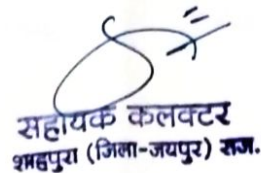 सहायक कलक्टर
शाहपुरा (जिला-जयपुर) राज.